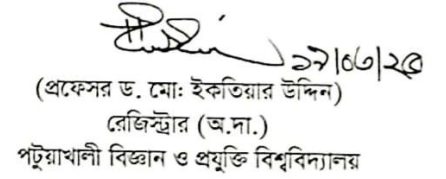 ১৯/০৩/২৫
(প্রফেসর ড. মোঃ ইকতিয়ার উদ্দিন)
রেজিস্ট্রার (অ.দা.)
পটুয়াখালী বিজ্ঞান ও প্রযুক্তি বিশ্ববিদ্যালয়